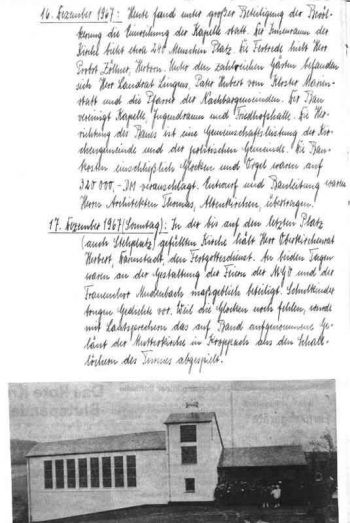 16. Dezember 1967: Heute fand unter großer Beteiligung der Bevöl-
kerung die Einweihung der Kapelle statt. Der Innenraum der
Kirche bietet etwa 240 Menschen Platz. Die Festrede hielt Herr
Probst Zöllner, Herborn. Unter den zahlreichen Gästen befanden
sich Herr Landrat Lingens, Pater Hubert vom Kloster Marien-
statt und die Pfarrer der Nachbargemeinden. Der Bau
vereinigt Kapelle, Jugendraum und Friedhofshalle. Die Her-
richtung des Baues ist eine Gemeinschaftsleistung der Kir-
chengemeinde und der politischen Gemeinde. Die Bau-
kosten einschließlich Glocken und Orgel waren auf
320 000,- DM veranschlagt. Entwurf und Bauleitung waren
Herrn Architekten Thomas, Altenkirchen, übertragen.
17. Dezember 1967 (Sonntag): In der bis auf den letzten Platz
(auch Stehplatz) gefüllten Kirche hält Herr Oberkirchenrat
Herbert, Darmstadt, den Festgottesdienst. An beiden Tagen
waren an der Gestaltung der Feiern der MGV und der
Frauenchor Mudenbach maßgeblich beteiligt. Schulkinder
trugen Gedichte vor. Weil die Glocken noch fehlen, wurde
mit Lautsprechern das auf Band aufgenommene Ge-
läut der Mutterkirche in Kroppach aus den Schall-
löchern des Turmes abgespielt.